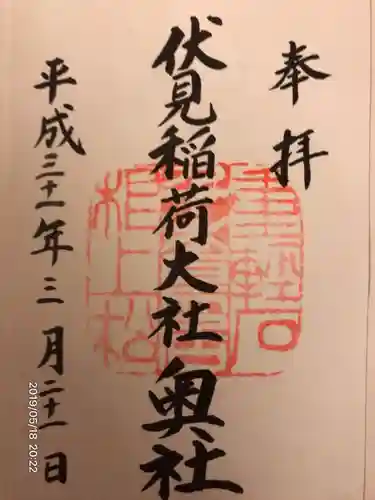 奉拝
伏見稲荷大社奥社
平成三十一年三月二十一日
2019/05/18 20:22